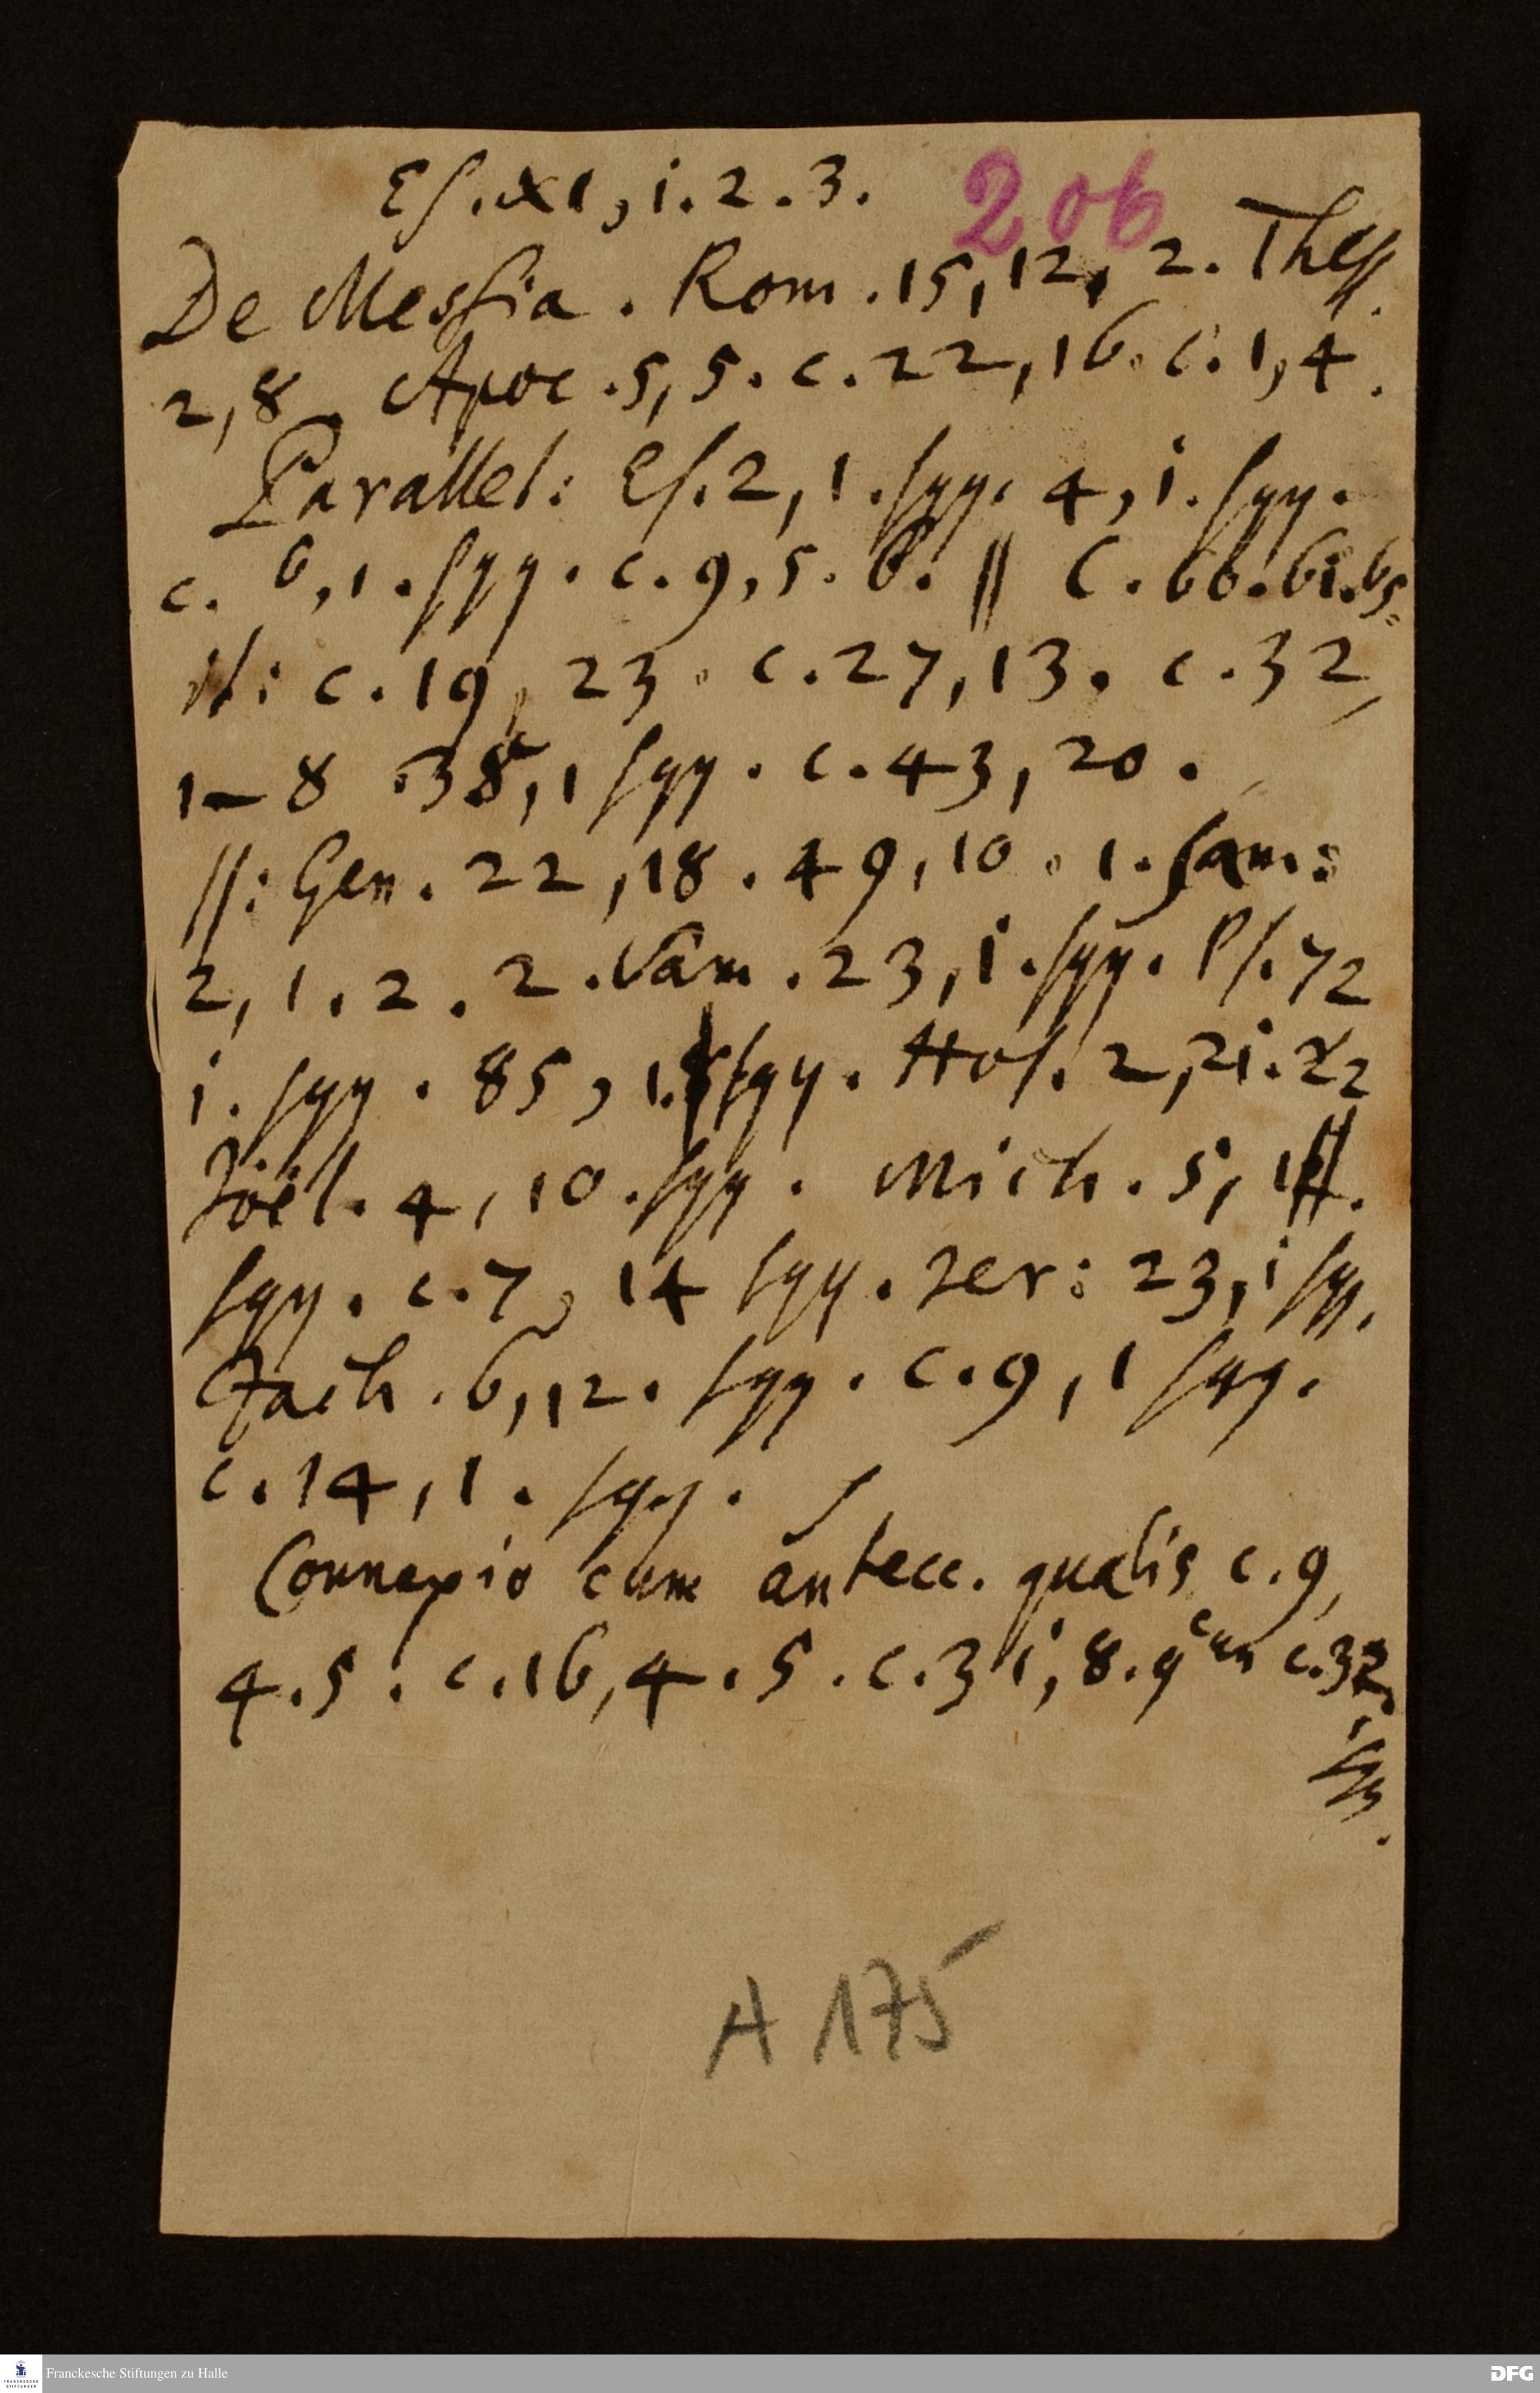 Es. XI, 1. 2. 3.
206
De Messia. Rom. 15, 12, 2. Thess.
2, 8. Apoc. 5, 5. c. 22, 16. c. 1, 4.
Parallel: Es. 2, 1. sqq. 4, 1. sqq.
c. 6, 1. sqq. c. 9, 5. 6. // C. 60. 61. 65.
it: c. 19, 23. c. 27, 13. c. 32,
1-8 . 38, 1 sqq. c. 43, 20.
//: Gen. 22, 18. 49, 10. 1. Sam:
2, 1. 2. 2. Sam. 23, 1. sqq. Ps. 72
1. sqq. 85, 1. sqq. Hos. 2, 21. 22
Joël. 4, 10. sqq. Mich. 5, 1.
sqq. c. 7, 14 sqq. Jer: 23, 1 sqq.
Zach. 6, 12. sqq. c. 9, 1 sqq.
c. 14, 1. sqq.
Connexio cum antecc. qualis c. 9,
4. 5. c. 16, 4. 5. c. 31, 8. 9 cum c. 32,
1. sqq.
A 175
Franckesche Stiftungen zu Halle
DFG